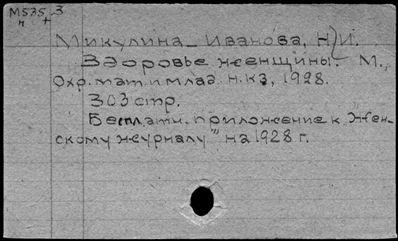 М535-3
н +
Микулина-Иванова, Н) И.
Здоровье женщины. М.,
Охр. мат. и млад. н.кз, 1928.
303 стр.
Бесплатн. приложение к "Жен-
скому журналу" на 1928 г.